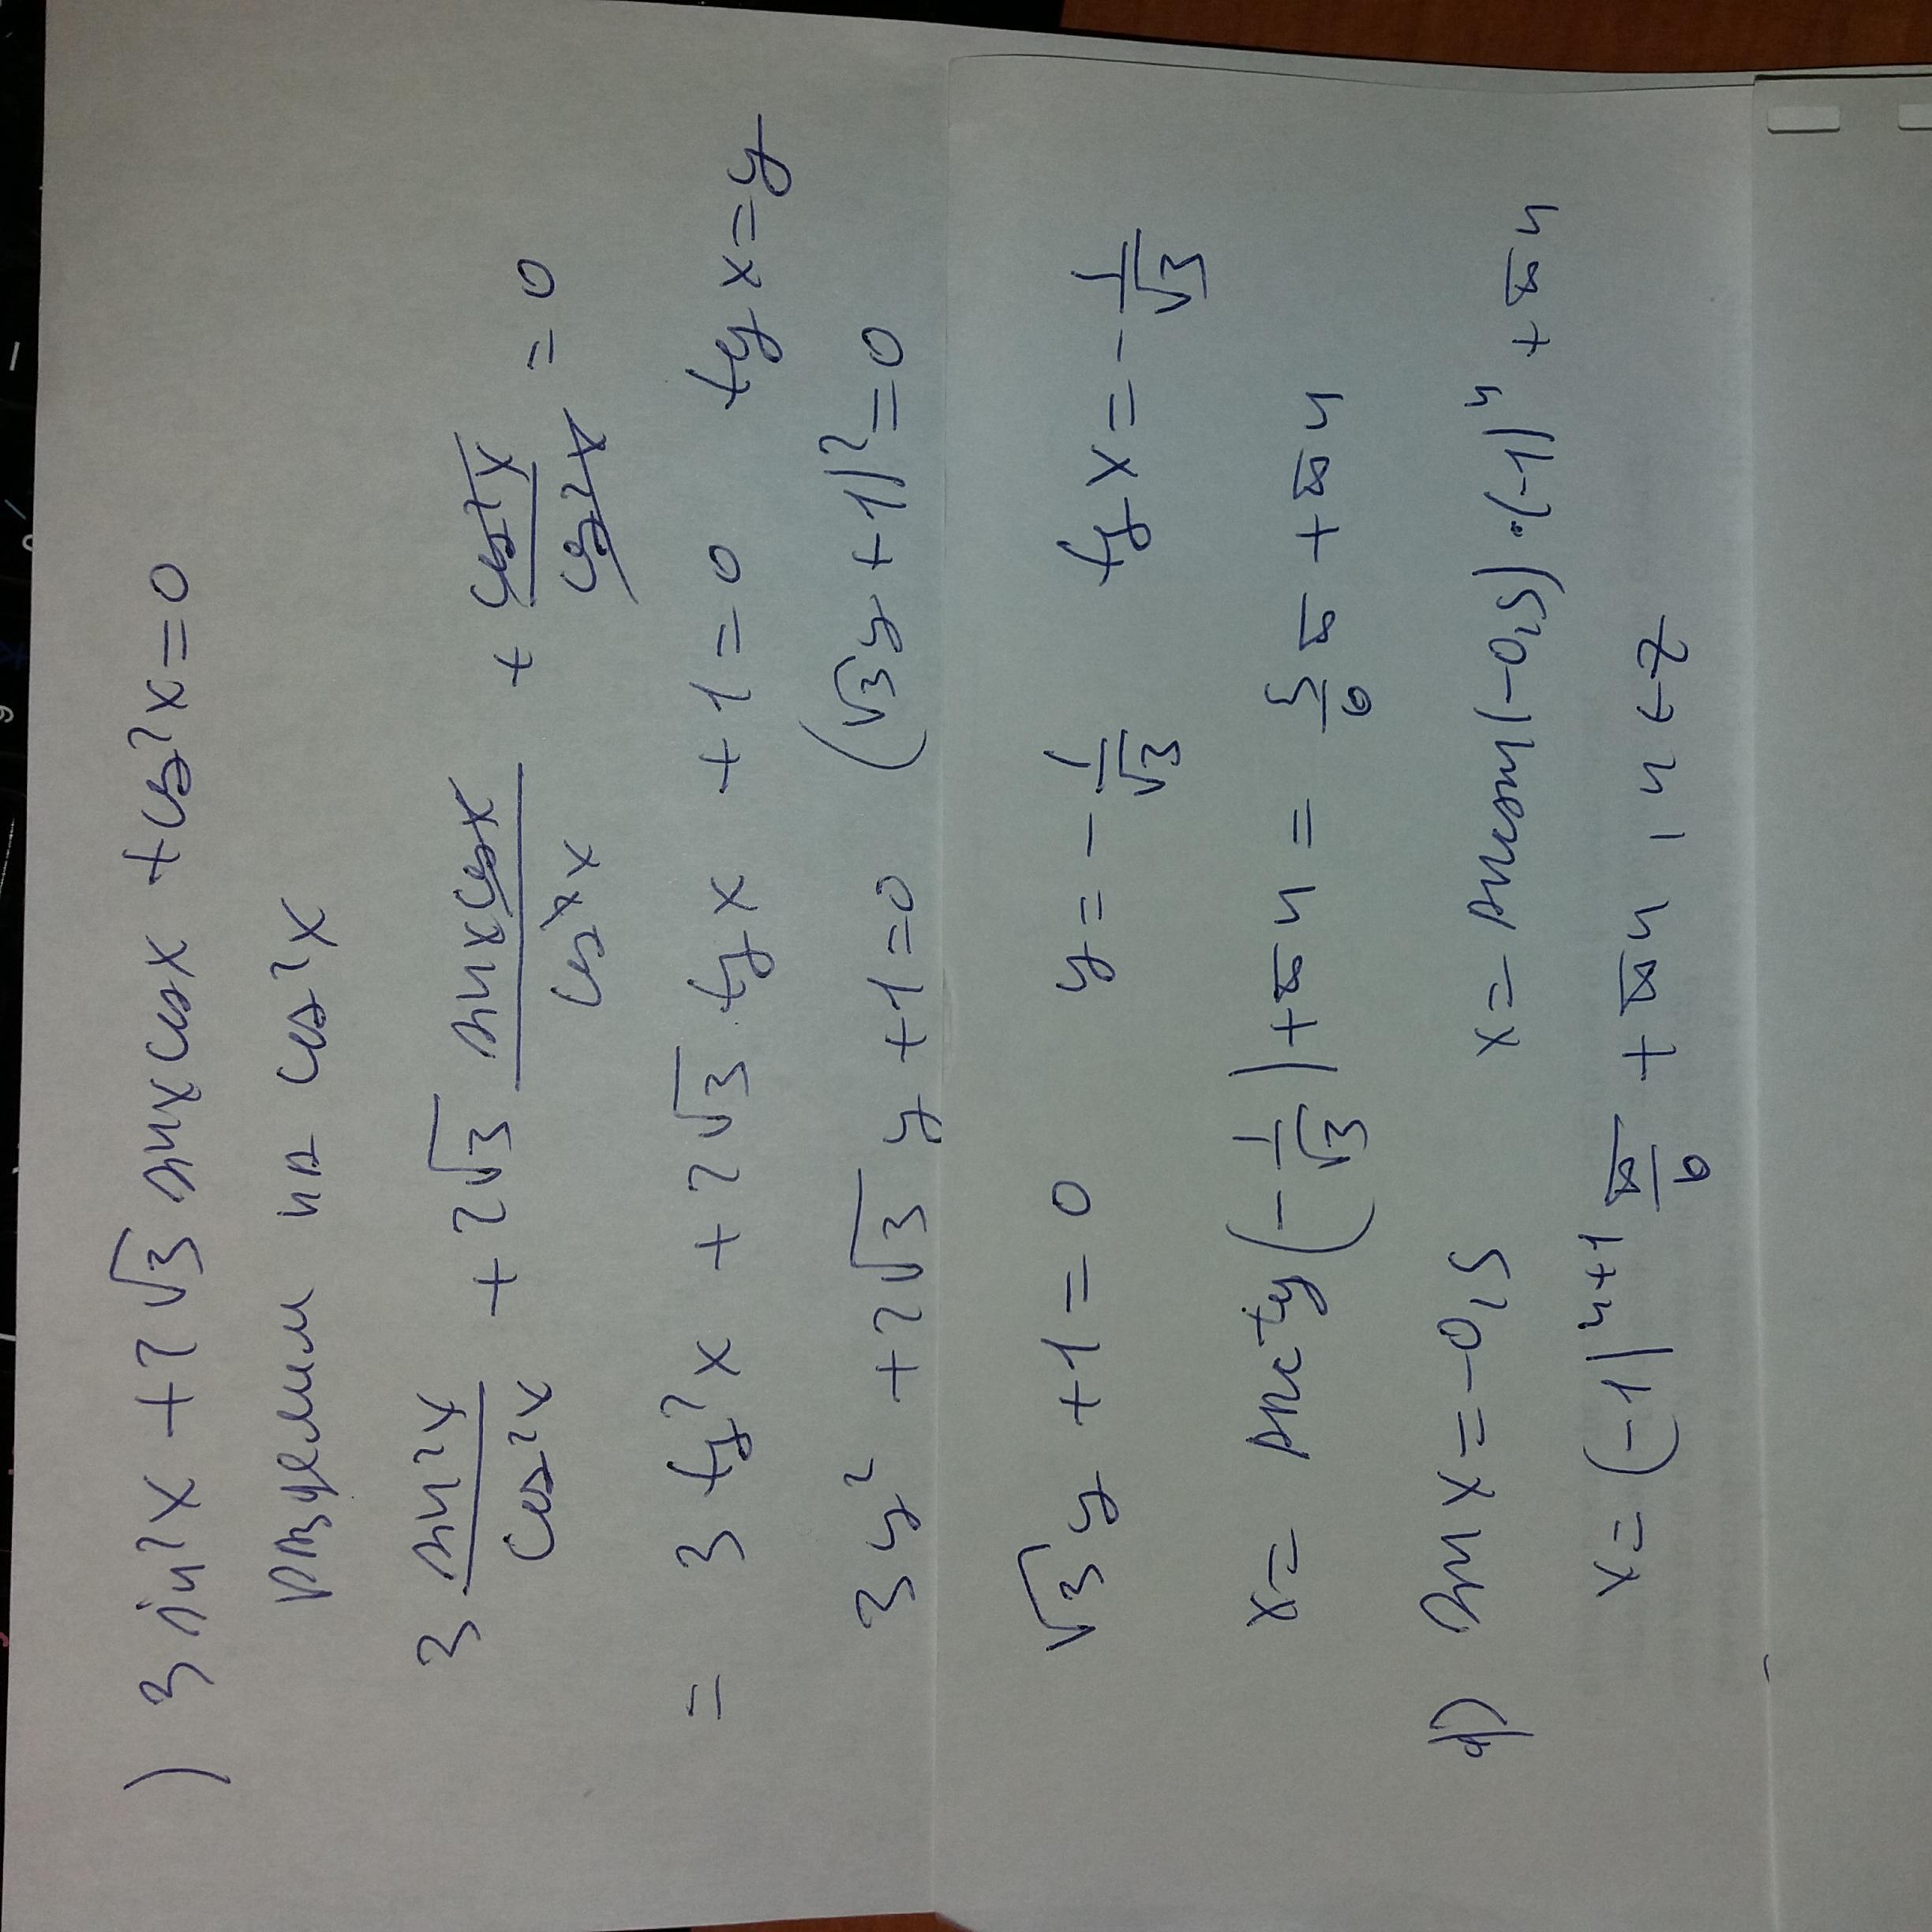 ) 3 sin²x + 2√3 sinx cosx + cos²x = 0
разделим на cos²x
3 sin²x/cos²x + 2√3 sinx cosx/cos²x + cos²x/cos²x = 0
= 3 tg²x + 2√3 tgx + 1 = 0 tg x = y
3y² + 2√3 y + 1 = 0 (√3y + 1)² = 0
√3y + 1 = 0 y = -1/√3 tg x = -1/√3
x = arctg(-1/√3) + πn = 5/6 π + πn
d) sin x = -0,5 x = arcsin(-0,5)·(-1)ⁿ + πn
x = (-1)ⁿ⁺¹ π/6 + πn, n ∈ Z